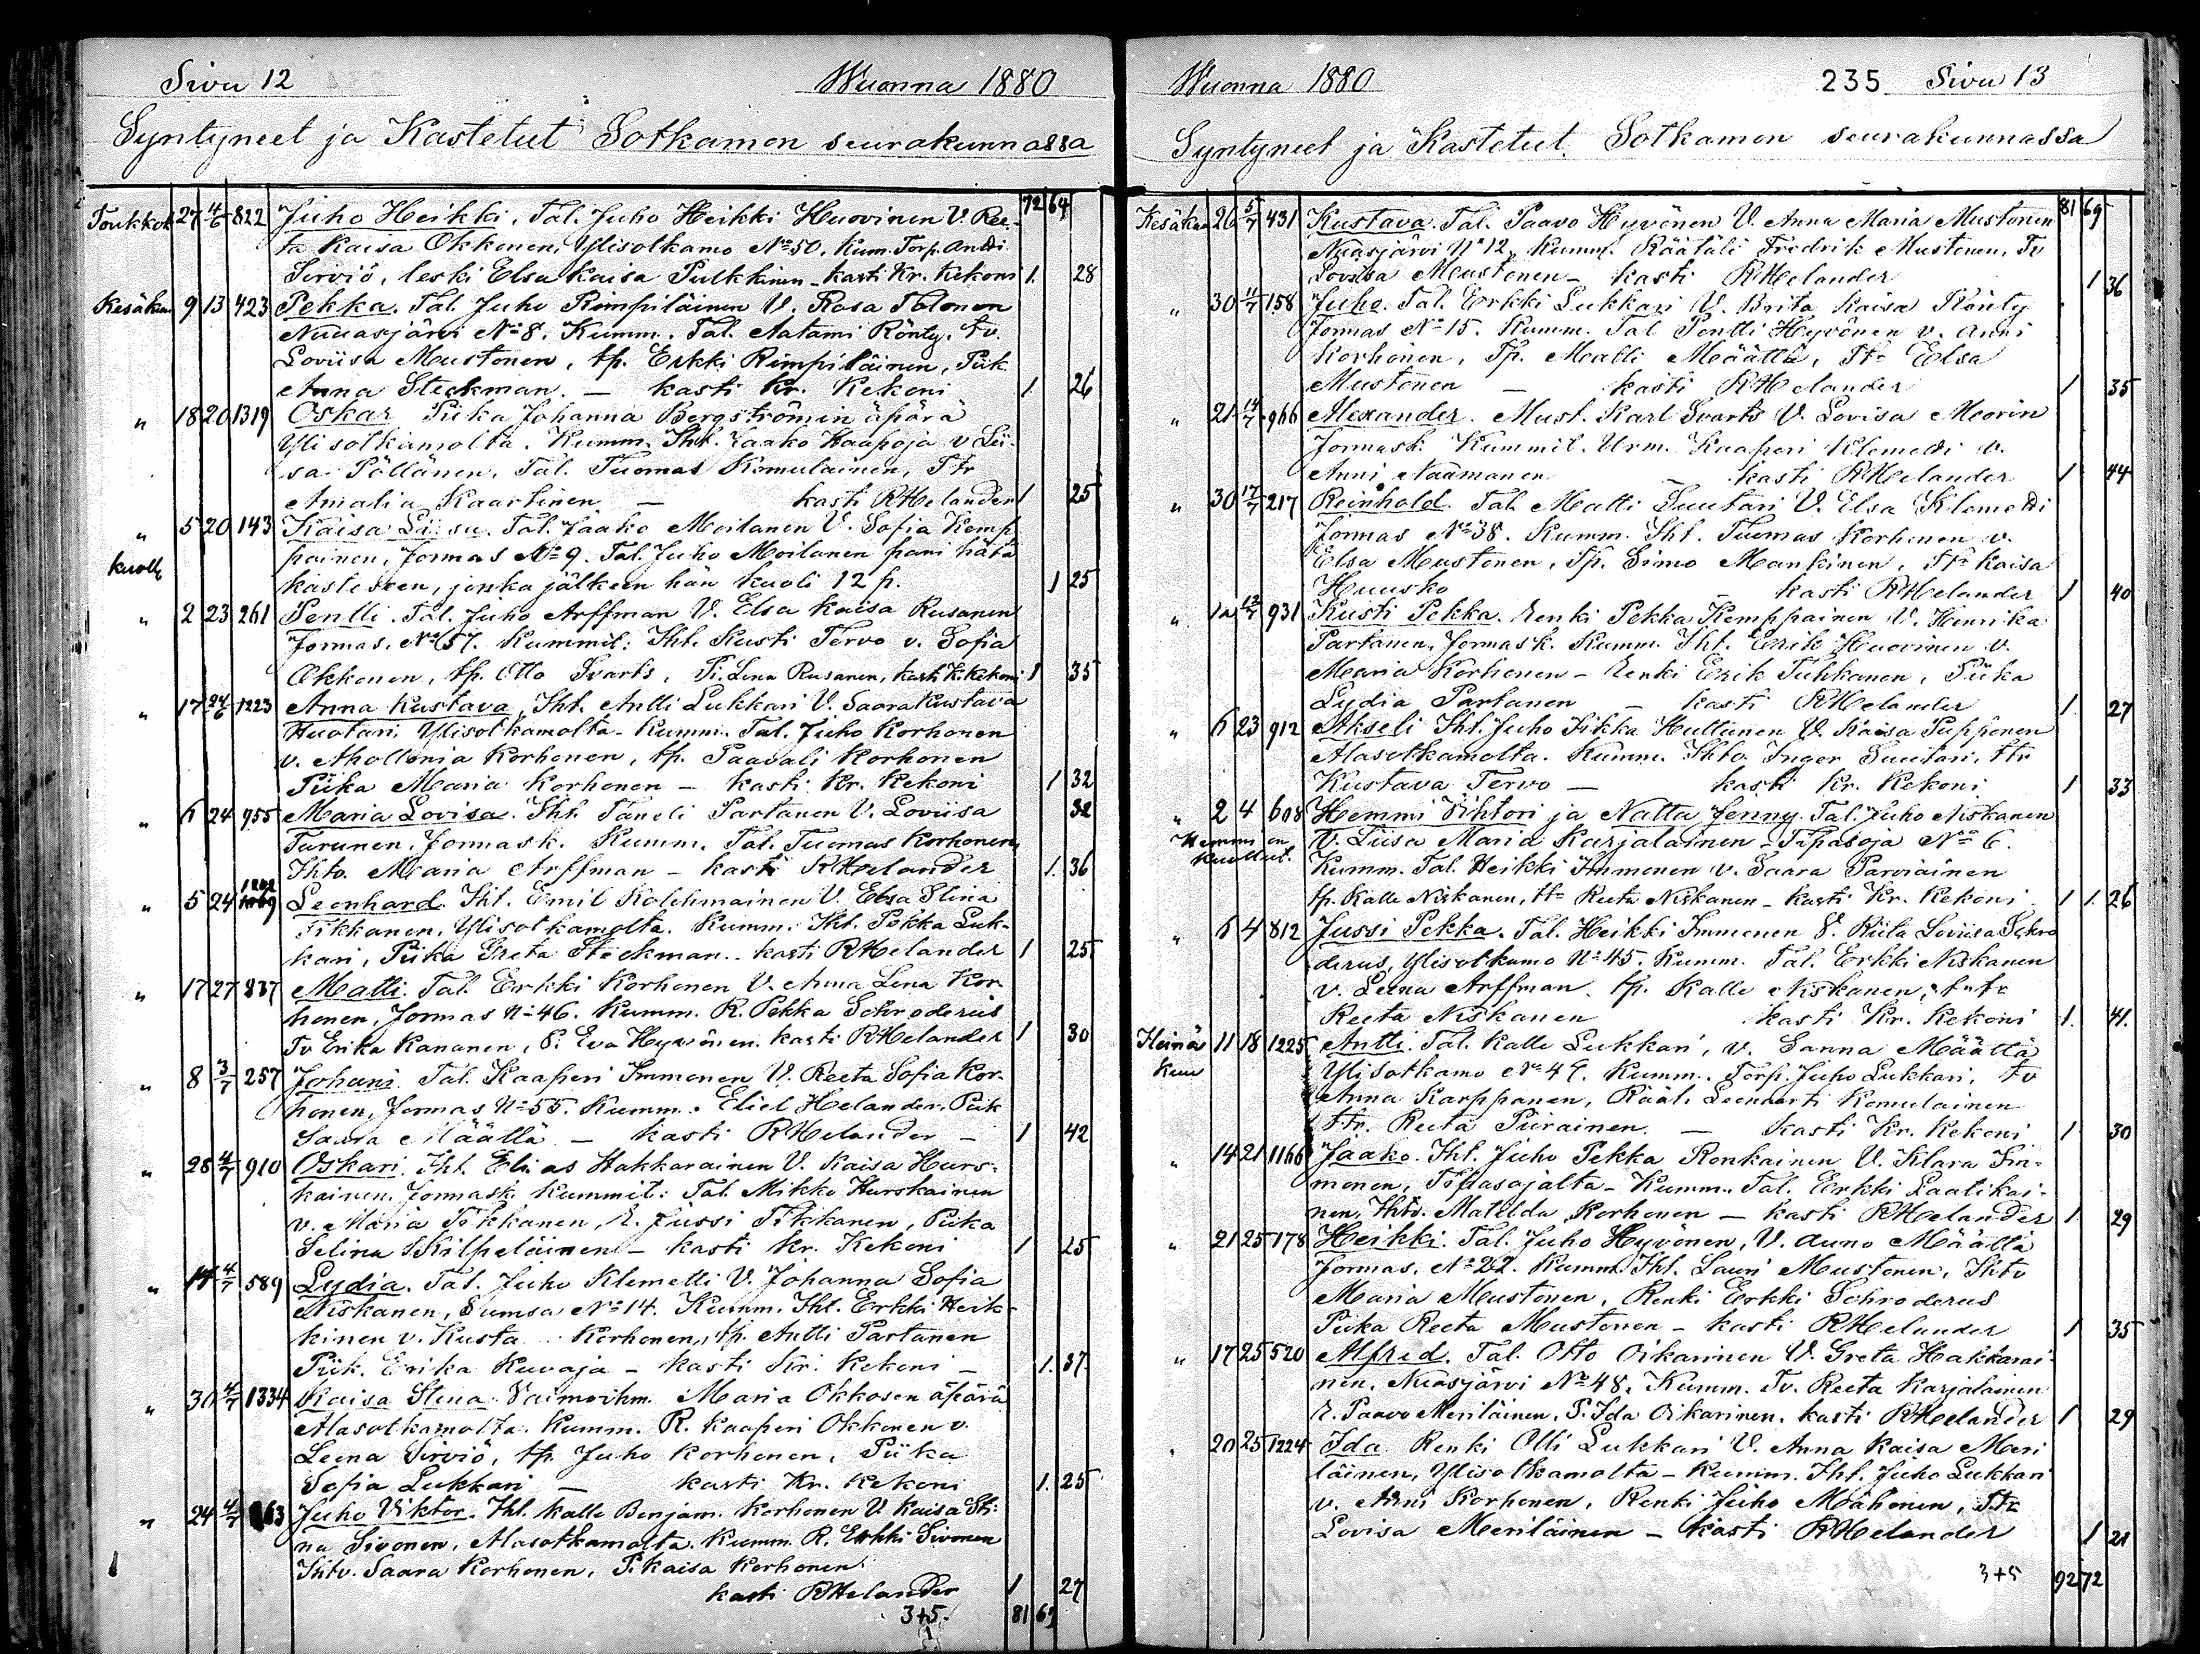 Sivu 12 Wuonna 1880
Syntyneet ja Kastetut Sotkamon seurakunnassa
72 64
Toukkok 27 4/6 822 Juho Heikki. Tal. Juho Heikki Huovinen V. Ree-
ta Kaisa Okkonen, Ylisotkamo No 50. Kum. Torp. Antti
Sirviö, leski Elsa Kaisa Pulkkinen - kasti Kr. Kekoni 1. 28
Kesäkuu 9 13 423 Pekka. Tal. Juho Rimpiläinen V. Rosa Tolonen
Nuuasjärvi No 8. Kumm. Tal. Aatami Rönty. tv.
Loviisa Mustonen, tp. Erkki Rimpiläinen, Piik
Anna Steckman. — kasti Kr. Kekoni 1 26
" 18 20 1319 Oskar Piika Johanna Bergströmin äpärä
Ylisotkamolta. Kumm. Iht. Jaako Haapoja v Lii-
sa Pöllänen, Tal. Tuomas Komulainen, Ttr
Amalia Kaartinen — kasti RHelander 1 25
" 5 20 143 Kaisa Liisu. Tal. Jaako Moilanen V. Sofia Kemp
painen, Jormas No 9. Tal. Juho Moilanen pani hätä
kuollut
kasteeseen, jonka jälkeen hän kuoli 12 p. 1 25
" 2 23 261 Pentti. Tal. Juho Arffman V. Elsa Kaisa Rusanen
Jormas. No 57. Kummit: Iht. Kusti Tervo v. Sofia
Okkonen, tp. Otto Svarts, Pi. Lena Rusanen, kasti K. Kekoni 1 35
" 17 24/6 1223 Anna Kustava, Iht. Antti Lukkari V. Saara Kustava
Huotari, Ylisotkamolta - Kumm. Tal. Juho Korhonen
v. Apollonia Korhonen, tp. Paavali Korhonen
Piika Maria Korhonen — kasti Kr. Kekoni 1 32
" 6 24 955 Maria Lovisa. Iht. Taneli Partanen V. Loviisa 32
Turunen, Jormask. Kumm. Tal. Tuomas Korhonen
Ihtv. Maria Arffman — kasti RHelander 1. 36
" 5 24 Leonhard. Iht. Emil Kolehmainen V. Elsa Stina
Tikkanen, Ylisotkamolta. Kumm. Iht. Pekka Luk-
kari, Piika Greta Steckman. kasti RHelander 1 25
" 17 27 837 Matti. Tal. Erkki Korhonen V. Anna Lena Kor
honen, Jormas No 46. Kumm. R. Pekka Schroderus
Tv Erika Kananen, P. Eva Hyvönen. kasti RHelander 1 30
" 8 3/7 257 Juhani. Tal. Kaaperi Immonen V. Reeta Sofia Kor-
honen, Jormas No 55. Kumm. Eliel Helander, Piik
Saara Määttä — kasti RHelander — 1 42
" 28 4/7 910 Oskari. Iht. Elias Hakkarainen V. Kaisa Hurs-
kainen. Jormask. Kummit: Tal. Mikko Hurskainen
v. Maria Tikkanen, R. Jussi Tikkanen, Piika
Selina Kilpeläinen - kasti Kr. Kekoni 1 25
" 14 4/7 589 Lydia. Tal. Juho Klemetti V. Johanna Sofia
Niskanen, Sumsa No 14. Kumm. Iht. Erkki Heik-
kinen v. Kusta Korhonen, tp. Antti Partanen
Piik. Erika Kuvaja - kasti Kr. Kekoni — 1. 37
" 30 4/7 1334 Kaisa Stina Vaimoihm. Maria Okkosen äpärä
Alasotkamolta. Kumm. R. Kaaperi Okkonen v.
Leena Sirviö, tp. Juho Korhonen, Piika
Sofia Lukkari — kasti Kr. Kekoni 1. 25
" 24 4/7 Juho Viktor. Iht. Kalle Benjam. Korhonen V. Kaisa Sti-
na Sivonen. Alasotkamolta. Kumm. R. Erkki Sivonen
Ihtv. Saara Korhonen, P. Kaisa Korhonen.
kasti RHelander 1 27
3+5. 81 69
Wuonna 1880 235 Sivu 13
Syntyneet ja Kastetut Sotkamon seurakunnassa
81 69
Kesäkuu 26 5/7 431 Kustava. Tal. Paavo Hyvönen V. Anna Maria Mustonen
Nuasjärvi No 12. Kumm. Räätäli Fredrik Mustonen, Tv
Lovisa Mustonen - kasti RHelander 1 36
" 30 11/7 158 Juho. Tal. Erkki Lukkari V. Brita Kaisa Rönty
Jormas No 15. Kumm. Tal Pentti Hyvönen v. Anni
Korhonen, Tp. Matti Määttä, Ttr Elsa
Mustonen — kasti RHelander 1 35
" 21 14/7 966 Alexander. Must. Karl Svarts V. Lovisa Moorin
Jormask. Kummit. Urm. Kaaperi Klemetti v.
Anni Naamanen kasti RHelander 1 44
" 30 17/7 217 Reinhold. Tal. Matti Suutari V. Elsa Klemetti
Jormas No 38. Kumm. Iht. Tuomas Korhonen v.
Elsa Mustonen, Tp. Simo Mankinen, Ttr Kaisa
Huusko — kasti RHelander 1 40
" 931 Kusti Pekka. Renki Pekka Kemppainen V. Henrika
Partanen, Jormask. Kumm. Iht. Erik Huovinen v.
Maria Korhonen - Renki Erik Tuhkanen, Piika
Lydia Partanen — kasti RHelander 1. 27
" 6 23 912 Akseli Iht. Juho Pekka Hultunen V. Kaisa Pupponen
Alasotkamolta. Kumm. Ihtv Inger Suutari, ttr
Kustava Tervo — kasti Kr. Kekoni 1 33
" 2 4 608 Hemmi Vihtori ja Natta Jenny. Tal. Juho Niskanen
Hemmi on kuollut.
V. Liisa Maria Karjalainen - Tipasoja No 6.
Kumm. Tal. Heikki Immonen v. Saara Parviainen
tp. Kalle Niskanen, ttr Reeta Niskanen - kasti Kr. Kekoni 1 1. 26
" 6 4 812 Jussi Pekka. Tal. Heikki Immonen V. Loviisa Schro
derus, Ylisotkamo No 45. Kumm. Tal. Erkki Niskanen
v. Leena Arffman. tp. Kalle Niskanen,
Reeta Niskanen kasti Kr. Kekoni 1. 41.
Heinä 11 18 1225 Antti. Tal. Kalle Lukkari, v. Sanna Määttä
kuu
Ylisotkamo No 47. Kumm. Torp. Juho Lukkari, tv
Anna Karppanen, Räät. Leonnarti Komulainen
ttr. Reeta Piirainen. — kasti Kr. Kekoni 1 30
" 14 21 1166 Jaako. Iht. Juho Pekka Ronkainen V. Klara Im-
monen, Tipasojalta - Kumm. Tal. Erkki Laatikai-
nen, Ihtv. Matilda Korhonen — kasti RHelander 1 29
" 21 25 178 Heikki. Tal. Juho Hyvönen, V. Auno Määttä
Jormas, No 22. Kumm. Iht. Lauri Mustonen, Ihtv
Maria Mustonen, Renki Erkki Schroderus
Piika Reeta Mustonen - kasti RHelander 1 35
" 17 25 520 Alfred. Tal. Otto Oikarinen V. Greta Hakkarai-
nen, Nuasjärvi No 48. Kumm. Tv. Reeta Karjalainen
R. Paavo Meriläinen, P. Ida Oikarinen. kasti RHelander 1 29
" 20 25 1224 Ida Renki Olli Lukkari V. Anna Kaisa Meri
läinen, Ylisotkamolta - Kumm. Iht. Juho Lukkari
v. Anni Korhonen, Renki Juho Mähönen, Ttr
Lovisa Meriläinen - kasti RHelander 1 21
3+5 92 72